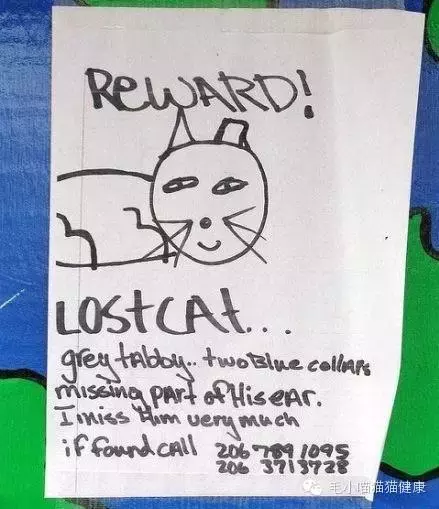 REWARD!
LOST CAT...
grey tabby.. two Blue collars
missing part of His ear.
I miss Him very much
if found call 206 789 1095
206 371 3728
毛小喵猫猫健康